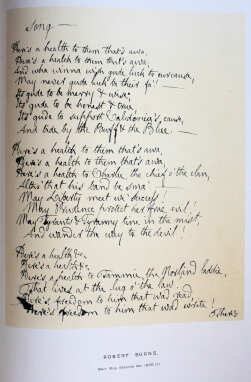 Song —
Here's a health to them that's awa,
Here's a health to them that's awa,
And wha winna wish gude luck to our cause,
May never gude luck be their fa'!
Its gude to be merry & wise,
Its gude to be honest & true,
Its gude to support Caledonia's cause,
And bide by the Buff & the Blue —
Here's a health to them that's awa,
Here's a health to them that's awa,
Here's a health to Charlie, the chief o' the clan,
Altho' that his band be sma'!
May Liberty meet wi' success!
May Prudence protect her frae evil!
May Tyrants & Tyranny tine in the mist
And wander the way to the devil!
Here's a health &c.
Here's a health &c.
Here's a health to Tammie, the Norland laddie,
That lives at the lug o' the law!
Here's freedom to him that wad read,
Here's freedom to him that wad write!
ROBERT BURNS.